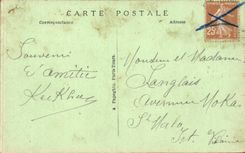 CARTE POSTALE
Correspondance
Adresse
Souvenir
d'amitié
Monsieur et Madame
Langlais
Avenue Moka
St Malo
Ille
Vilaine
25c